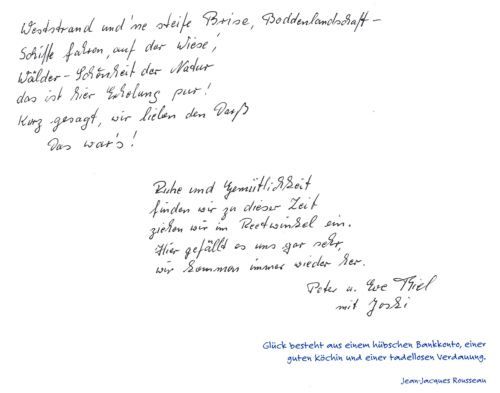 Weststrand und 'ne steife Brise, Boddenlandschaft –
Schiffe fahren, auf der Wiese,
Wälder – Schönheit der Natur
das ist hier Erholung pur!
Kurz gesagt, wir lieben den Darß
Das war's!
Ruhe und Gemütlichkeit
finden wir zu dieser Zeit
ziehen wir im Reetwinkel ein.
Hier gefällt es uns gar sehr,
wir kommen immer wieder her.
Peter u. Eve Thiel
mit Joski
Glück besteht aus einem hübschen Bankkonto, einer
guten Köchin und einer tadellosen Verdauung.
Jean-Jacques Rousseau